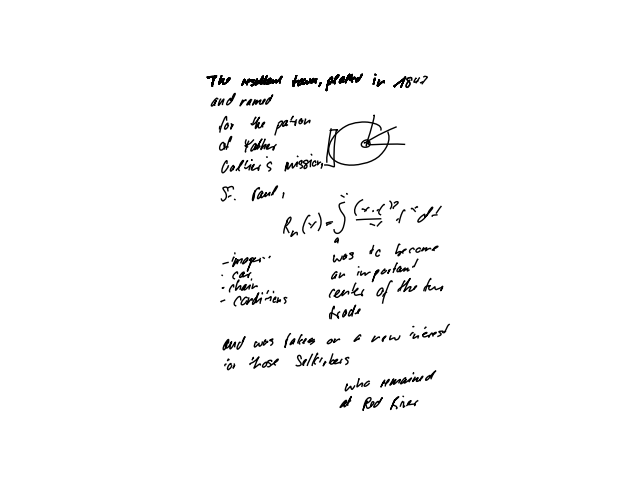 The resultant town, platted in 1847
and named
for the patron
of Father
Galtier's mission,
St. Paul,
R_n(x) = ∫ dt
- images
- car
- chain
- conditions
was to become
an important
center of the fur
trade
and was taken on a new interest
for those Selkirkers
who remained
at Red River